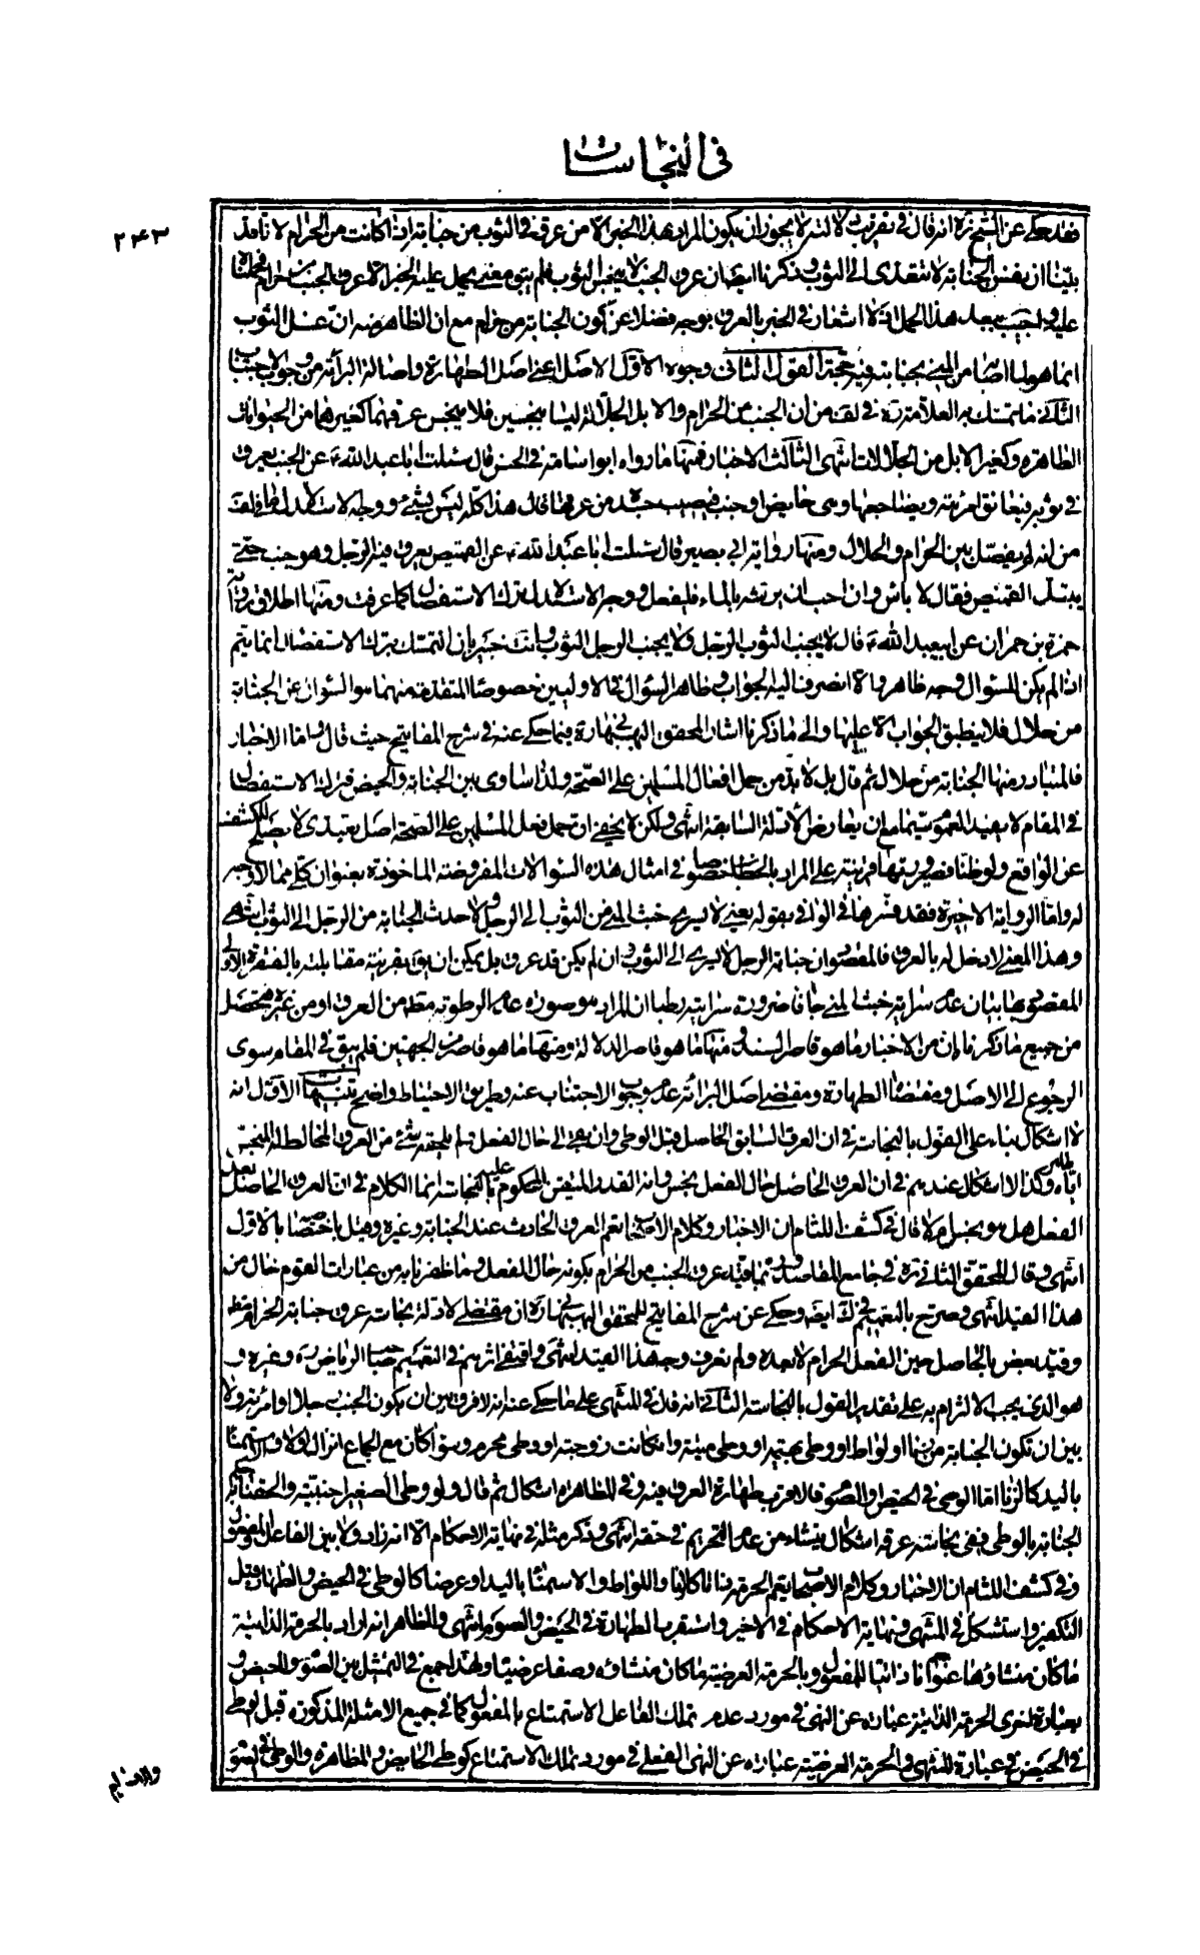 في النجاسات
٢٤٣
فقد حكي عن الشيخ ره انه قال في تقريب دلالته لا يجوز ان يكون المراد بهذا الخبر الا من عرق في الثوب من جنابة اذا كانت من الحرام لانا قد
بينا ان نفس الجنابة لا تتعدى الى الثوب وذكرنا ايضا ان عرق الجنب لا ينجس الثوب فلم يبق معنى يحمل عليه الخبر الا عرق الجنب من حرام فحملناه
عليه واجيب ببعد هذا الحمل اذ لا اشعار في الخبر بالعرق بوجه فضلا عن كون الجنابة من حرام مع ان الظاهر منه ان غسل الثوب
انما هو لما اصابه من المني بجنابته فيه حجة القول الثاني وجوه الاول الاصل اعني اصل الطهارة واصالة البرائة من وجوب الاجتناب
الثاني ما تمسك به العلامة ره في لف من ان الجنب من الحرام والابل الجلالة ليسا بنجسين فلا ينجس عرقهما كغيرهما من الحيوانات
الطاهرة وكغير الابل من الجلالات انتهى الثالث الاخبار فمنها ما رواه ابو اسامة في الحسن قال سئلت ابا عبد الله ع عن الجنب يعرق
في ثوبه فيعانق امرئته ويضاجعها وهى حائض او جنب فيصيب جسده من عرقها قال هذا كله ليس بشئ ووجه الاستدلال ما في لف
من انه لم يفصل بين الحرام والحلال ومنها رواية ابي بصير قال سئلت ابا عبد الله ع عن القميص يعرق فيه الرجل وهو جنب حتى
يبتل القميص فقال لا باس وان احب ان يرشه بالماء فليفعل ووجه الاستدلال ترك الاستفصال كما عرفت ومنها اطلاق رواية
حمزة بن حمران عن ابيعبد الله ع قال لا يجنب الثوب الرجل ولا يجنب الرجل الثوب وانت خبير بان التمسك بترك الاستفصال انما يتم
اذا لم يكن للسؤال وجه ظاهر والا انصرف اليه الجواب وظاهر السؤال في الاوليين خصوصا المتقدمة منهما هو السؤال عن الجنابة
من حلال فلا ينطبق الجواب الا عليها والى ما ذكرنا اشار المحقق البهبهاني ره فيما حكي عنه في شرح المفاتيح حيث قال واما الاخبار
فالمتبادر منها الجنابة من حلال ثم قال بل لا بد من حمل افعال المسلمين على الصحة ولذا ساوى بين الجنابة والحيض فترك الاستفصال
في المقام لا يفيد العموم سيما مع ان يعارض الادلة السابقة انتهى ولكن لا يخفى ان حمل فعل المسلمين على الصحة اصل تعبدى لا يصلح للكشف
عن الواقع ولو ظنا فصيرورتها قرينة على المراد بالخطاب خصوصا في امثال هذه السؤالات المفروضة الماخوذة بعنوان كلي مما لا وجه
له واما الرواية الاخيرة فقد فسرها في الوافي بقوله يعني لا يسري خبث المني من الثوب الى الرجل ولا حدث الجنابة من الرجل الى الثوب انتهى
وهذا المعنى لا دخل له بالعرق فالمقصود ان جنابة الرجل لا يسري الى الثوب ان لم يكن قد عرق بل يمكن ان يق بقرينة مقابلته بالفقرة الاولى
المقصود بها بيان عدم سراية خبث المني جافا ضرورة سرايته رطبا ان المراد هو صورة عدم الرطوبة مقدمة من العرق او من غيره فتحصل
من جميع ما ذكرنا ان من الاخبار ما هو قاصر السند ومنها ما هو قاصر الدلالة ومنها ما هو قاصر من الجهتين فلم يبق في المقام سوى
الرجوع الى الاصل ومقتضاه الطهارة ومقتضى اصل البرائة عدم وجوب الاجتناب عنه وطريق الاحتياط واضح تنبيهات الاول انه
لا اشكال بناء على القول بالنجاسة في ان العرق السابق الحاصل قبل الوطى وان بقي الى حال الفعل ما لم يلحقه شئ من العرق المخالط له لينجس
اياه وكذا لا اشكال عندهم في ان العرق الحاصل حال الفعل نجس وانه القدر المتيقن المحكوم عليه بالنجاسة انما الكلام في ان العرق الحاصل بعد
الفعل هل هو نجس ام لا قال في كشف اللثام ان الاخبار وكلام الاصحاب تعم العرق الحادث عند الجنابة وغيره وقيل باختصاصها بالاول
انتهى وقال المحقق الثاني ره في جامع المقاصد وربما قيد عرق الجنب من الحرام بكونه حال الفعل وما ظفرنا به من عبارات القوم خال من
هذا القيد انتهى وصرح بالتعميم في ايضه وحكي عن شرح المفاتيح للمحقق البهبهاني ره ان مقتضى الادلة نجاسة عرق جنابة الحرام مط
وقيد بعض بالحاصل حين الفعل الحرام لا بعده ولم نعرف وجه هذا القيد انتهى واقتفى اثرهم في التعميم صاحب الرياض ره وغيره و
هو الذي يجب الالتزام به على تقدير القول بالنجاسة الثاني انه قال في المنتهى على ما حكي عنه انه لا فرق بين ان يكون الجنب رجلا او امرئة ولا
بين ان تكون الجنابة من زنا او لواط او وطى بهيمة او وطى ميتة وان كانت زوجته او وطى محرم وسواء كان مع الجماع انزال او لا والاستمناء
باليد كالزنا اما الوطى في الحيض او الصوم فالاقرب طهارة العرق فيه وفي المظاهرة اشكال ثم قال ولو وطى الصغير اجنبية والحقنا به
الجنابة بالوطى ففي نجاسة عرقه اشكال ينشاء من عدم التحريم في حقه انتهى وذكر مثله في نهاية الاحكام الا انه زاد ولا بين الفاعل والمفعول
وفي كشف اللثام ان الاخبار وكلام الاصحاب تعم الحرمة ذاتا كالزنا واللواط والاستمناء باليد او عرضا كالوطى في الحيض والظهار وقبل
التكفير واستشكل في المنتهى ونهاية الاحكام في الاخير واستقرب الطهارة في الحيض والصوم انتهى والظاهر انه اراد بالحرمة الذاتية
ما كان منشاؤها عنوانا ذاتيا للمفعول وبالحرمة العرضية ما كان منشاؤه وصفا عرضيا ولهذا جمع في التمثيل بين الصوم والحيض و
بعبارة اخرى الحرمة الذاتية عبارة عن النهى في مورد عدم تملك الفاعل الاستمتاع بالمفعول كما في جميع الامثلة المذكورة قبل الوطى
في الحيض في عبارة المنتهى والحرمة العرضية عبارة عن النهى الفعلي في مورد تملك الاستمتاع كوطى الحايض والمظاهرة والوطى في الصوم